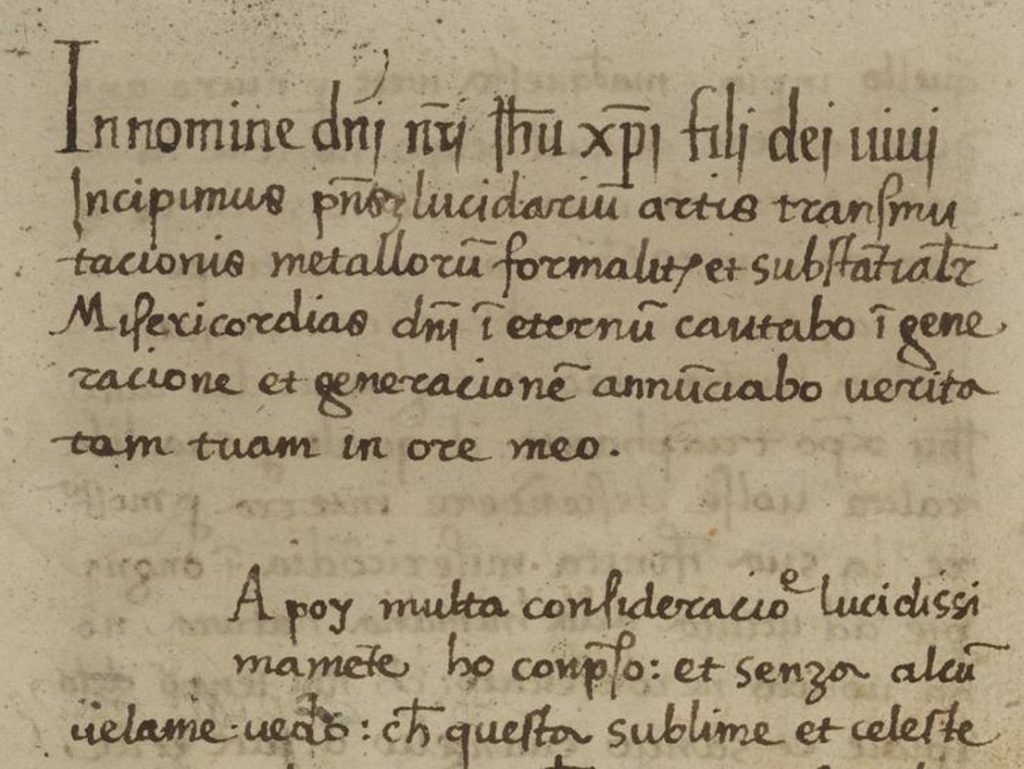 In nomine dn̄j nr̄j Jħu xp̄i filij dei uiuj
Incipimus pn̄s lucidariū artis transmu
tacionis metallorū formalit et substātialr̄
Misericordias dn̄j ī eternū cantabo ī gene
racione et generacionē annūciabo uerita
tam tuam in ore meo.
A poy multa consideracioe lucidissi
mamēte ho conpso: et senza alcū
uelame uedo: cħ questa sublime et celeste